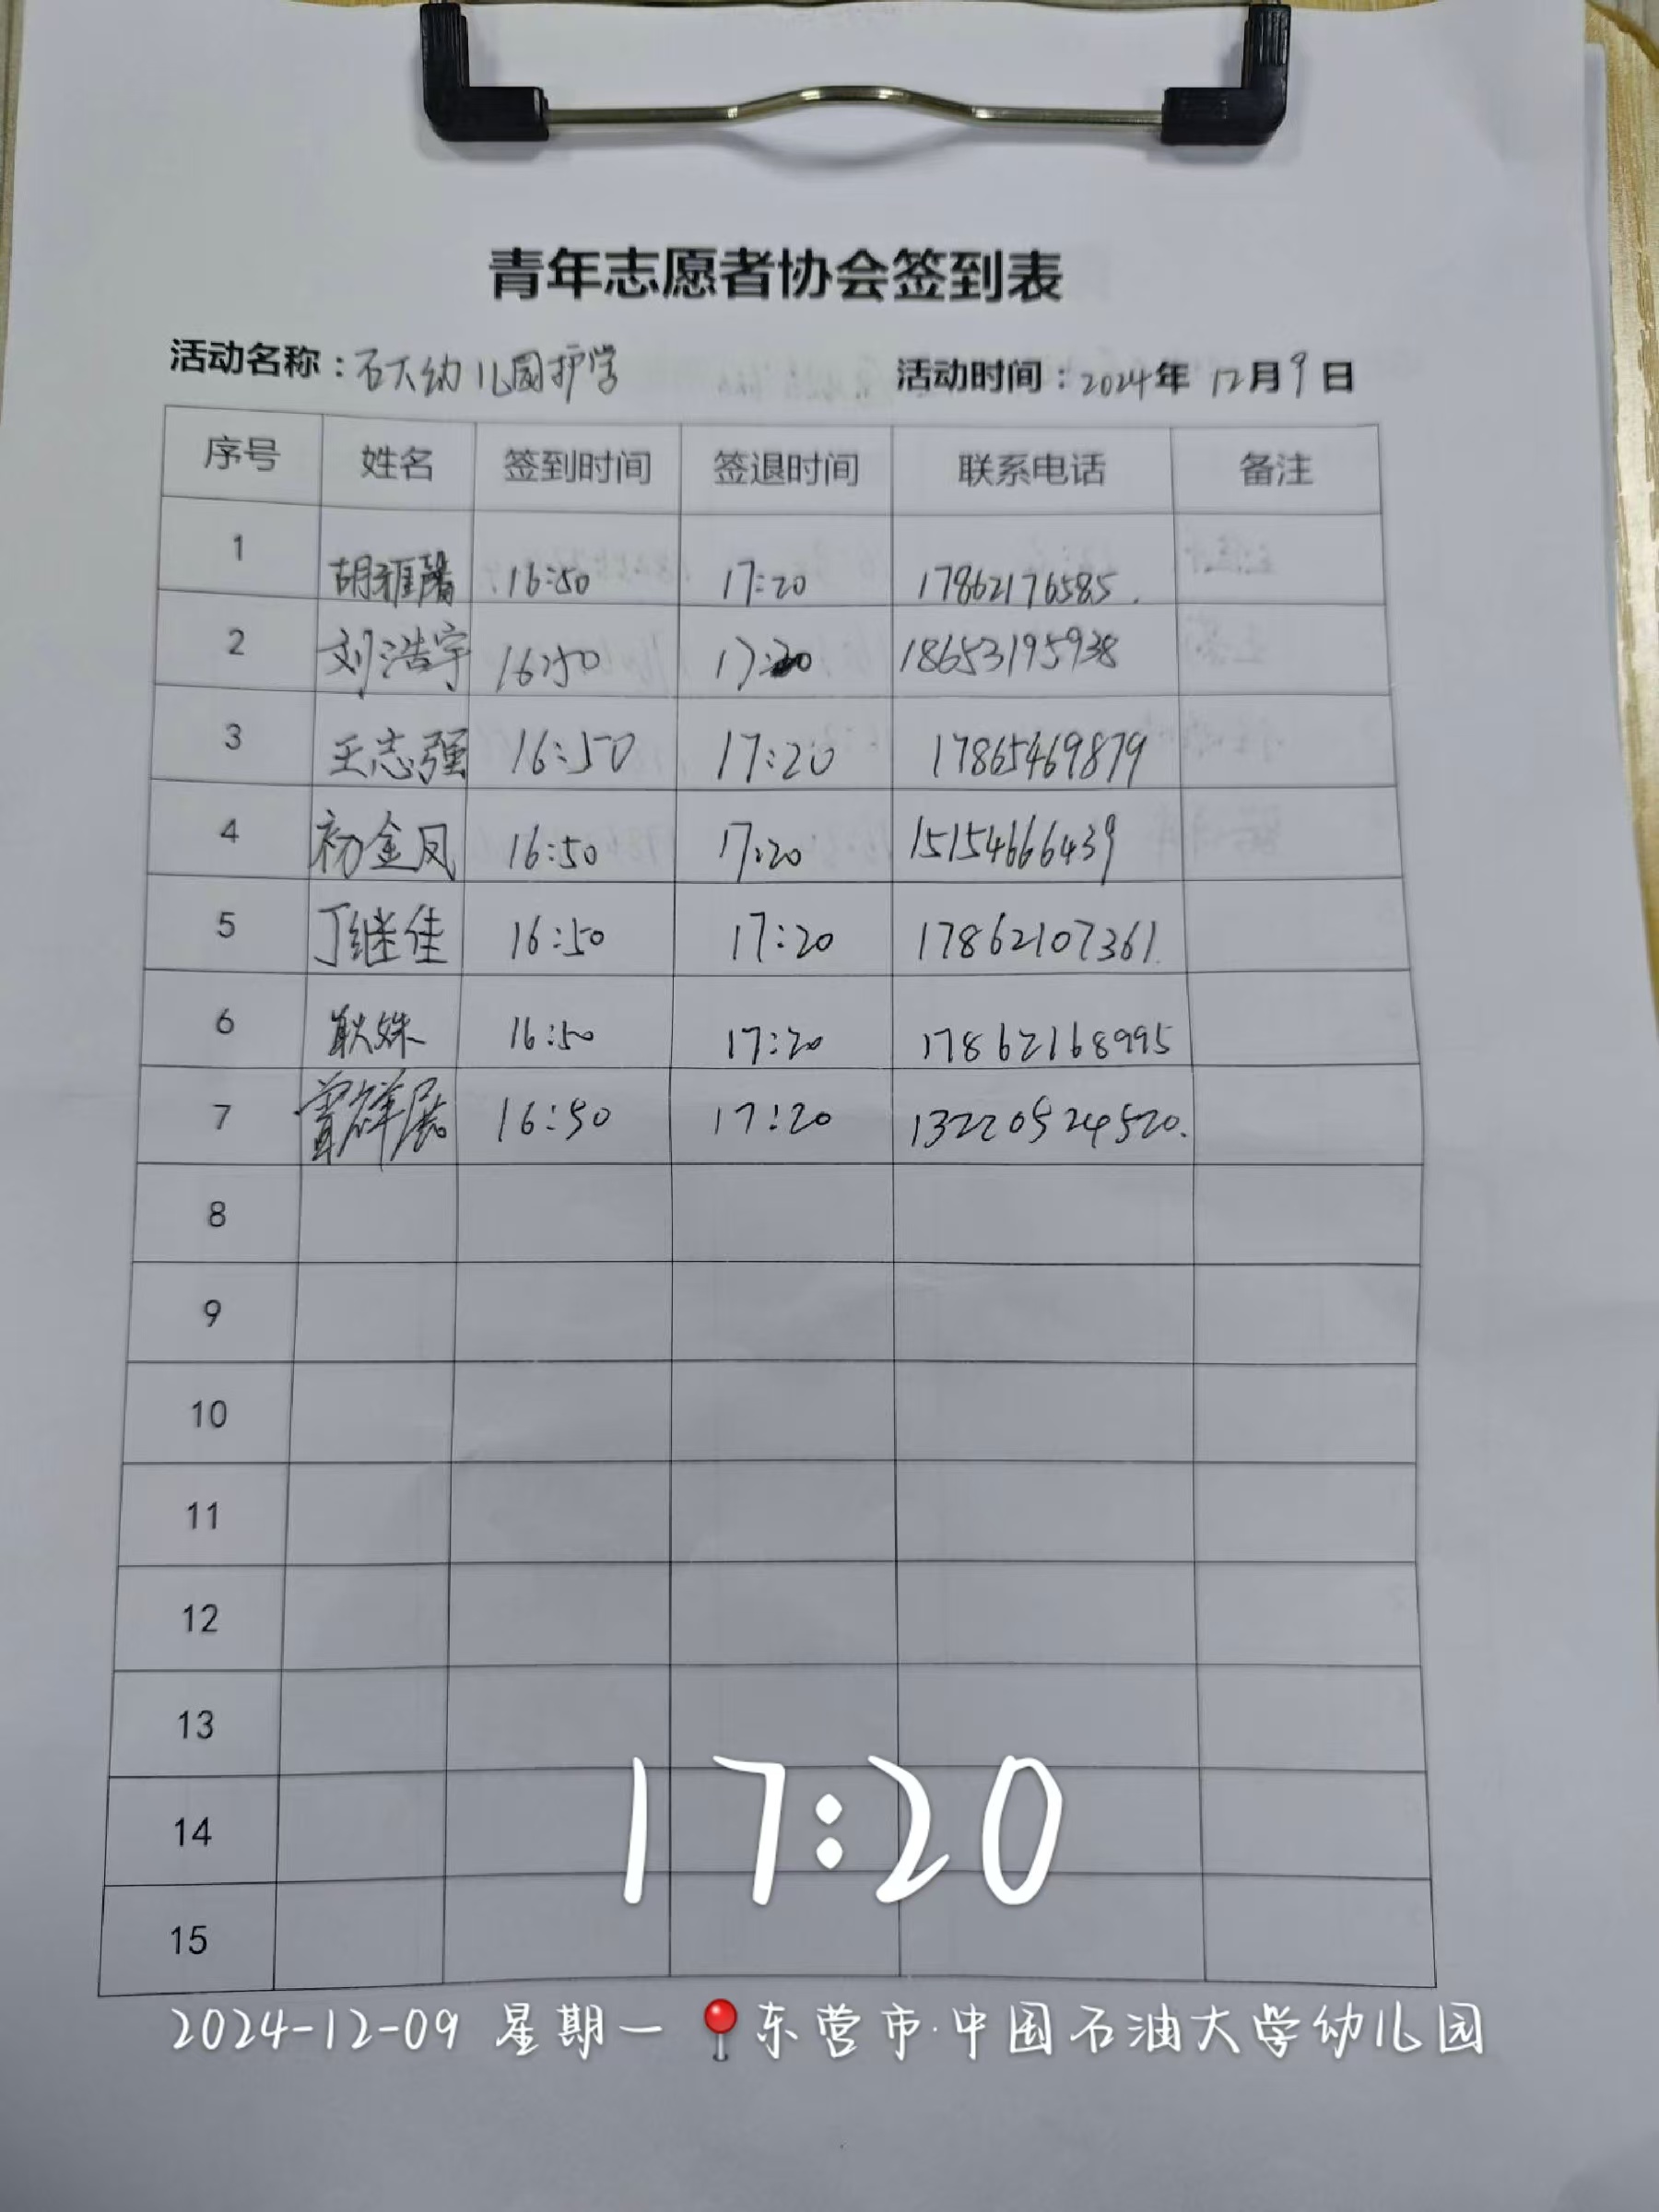 青年志愿者协会签到表
活动名称：石大幼儿园护学 活动时间：2024年12月9日
序号 姓名 签到时间 签退时间 联系电话 备注
1 胡雅馨 16:50 17:20 17862176585
2 刘浩宇 16:50 17:20 18653195938
3 王志强 16:50 17:20 17865469879
4 初金凤 16:50 17:20 15154666439
5 丁继佳 16:50 17:20 17862107361
6 耿姝 16:50 17:20 17862168995
7 16:50 17:20 13220524520.
8
9
10
11
12
13
14
15
17:20
2024-12-09 星期一 东营市·中国石油大学幼儿园